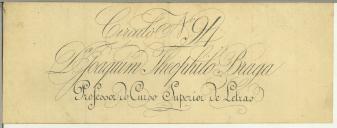 Circulo Nº 94
Dr. Joaquim Theophilo Braga
Professor do Curso Superior de Letras